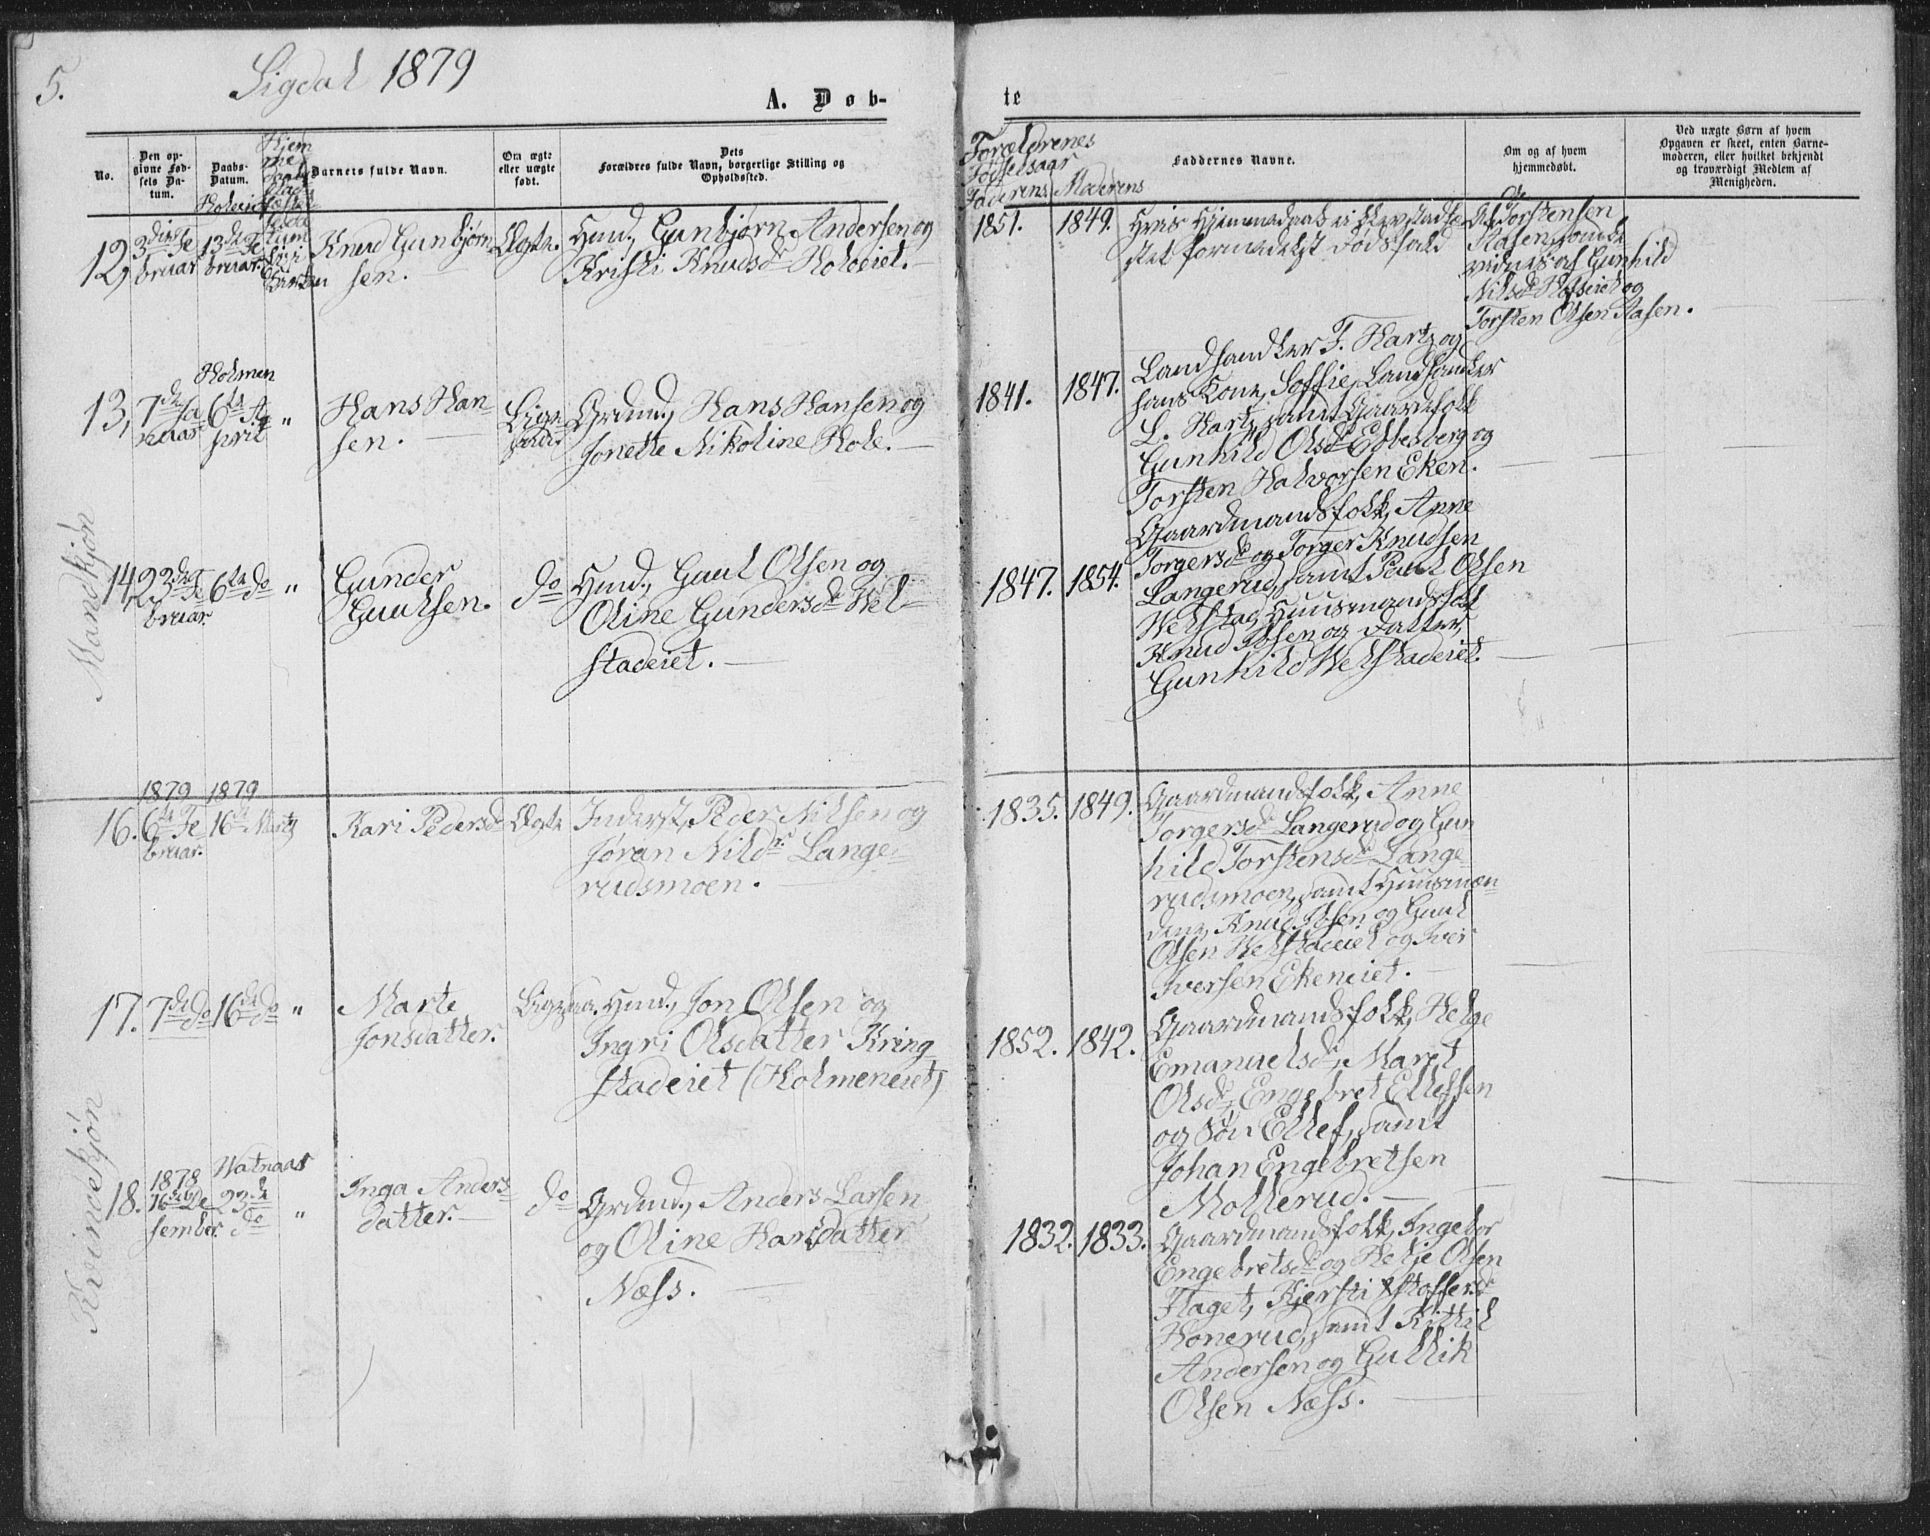 5.
Sigdal 1879
A. Døb-
te
No.
Den op-
givne Fød-
sels Da-
tum.
Daabs-
Datum.
Barnets fulde Navn.
Om ægte
eller uægte
født.
Dets
Forældres fulde Navn, borgerlige Stilling og
Opholdssted.
Forældrenes
Fødselsaar
Faderens Moderens
Faddernes Navne.
Om og af hvem
hjemmedøbt.
Ved uægte Børn af hvem
Opgaven er skeet, enten Barne-
moderen, eller hvilket bekjendt
og troværdigt Medlem af
Menigheden.
Mandkjøn
12, 3die Fe
bruar. 13de Fe
bruar. Knud Gunbjørn
sen. Ægte. Husmd., Gunbjørn Andersen og
Kristi Knudsdr Holeiet.
1851. 1849. Hvis Hjemmedaab ei blev stadfæ
stet formedelst Dødsfald
Torstensen
Aasen,
vidnes af Gunhild
Nilsdr og
Torsten Olsen Aasen.
13, 7de Ja
nuar Holmen
6te A
pril " Hans Han
sen. Grdmd., Hans Hansen og
Jonette Nikoline Hole.
1841. 1847. Landhandler T. Hartz og
hans Kone, Soffie, Landhandler
L. Hartz, samt Gaardfolk
Gunhild Olsdr og
Torsten Halvorsen Eken.
14, 23de Fe
bruar. 6te do " Gunder
Guulsen. do Husmd., Guul Olsen og
Oline Gundersdr Vel-
stadeiet.
1847. 1854. Gaardmandsfolk, Anne
Torgersdr og Torger Knudsen
Langerud, samt Paul Olsen
Welstad, Huusmandsfolk
Knud og Datter
Gunhild Welstadeiet.
Kvindekjøn
16. 1879
6te Fe
bruar. 1879
16de Marts Kari Pedersdr Ægte Inderst, Peder Nilsen og
Jøran Nilsdr. Lange-
rudsmoen.
1835. 1849. Gaardmandsfolk, Anne
Torgersdr Langerud og Gun
hild Torstensdr Lange-
rudsmoen, samt Huusmæn
dene, Knud og Guul
Olsen Welstadeiet og Iver
Iversen Ekeneiet.
17. 7de do 16de do " Marte
Jonsdatter. Ligesaa. Husmd., Jon Olsen og
Ingri Olsdatter Kring
stadeiet (Holmeneiet)
1852. 1842. Gaardmandsfolk, Helge
Emanuelsdr, Maret
Olsdr, Engebret Ellefsen
og Søn Ellef, samt
Johan Engebretsen
Mollerud.
18. 1878
16de De
sember. Watnaas
23de
do " Inga Anders
datter. do Grdmd., Anders Larsen
og Oline Hansdatter
Næss.
1832. 1833. Gaardmandsfolk, Ingebor
Engebretsdr og Helje Olsen
Flaget, Kjersti
Honerud, samt Kittil
Andersen og Gullik
Olsen Næss.